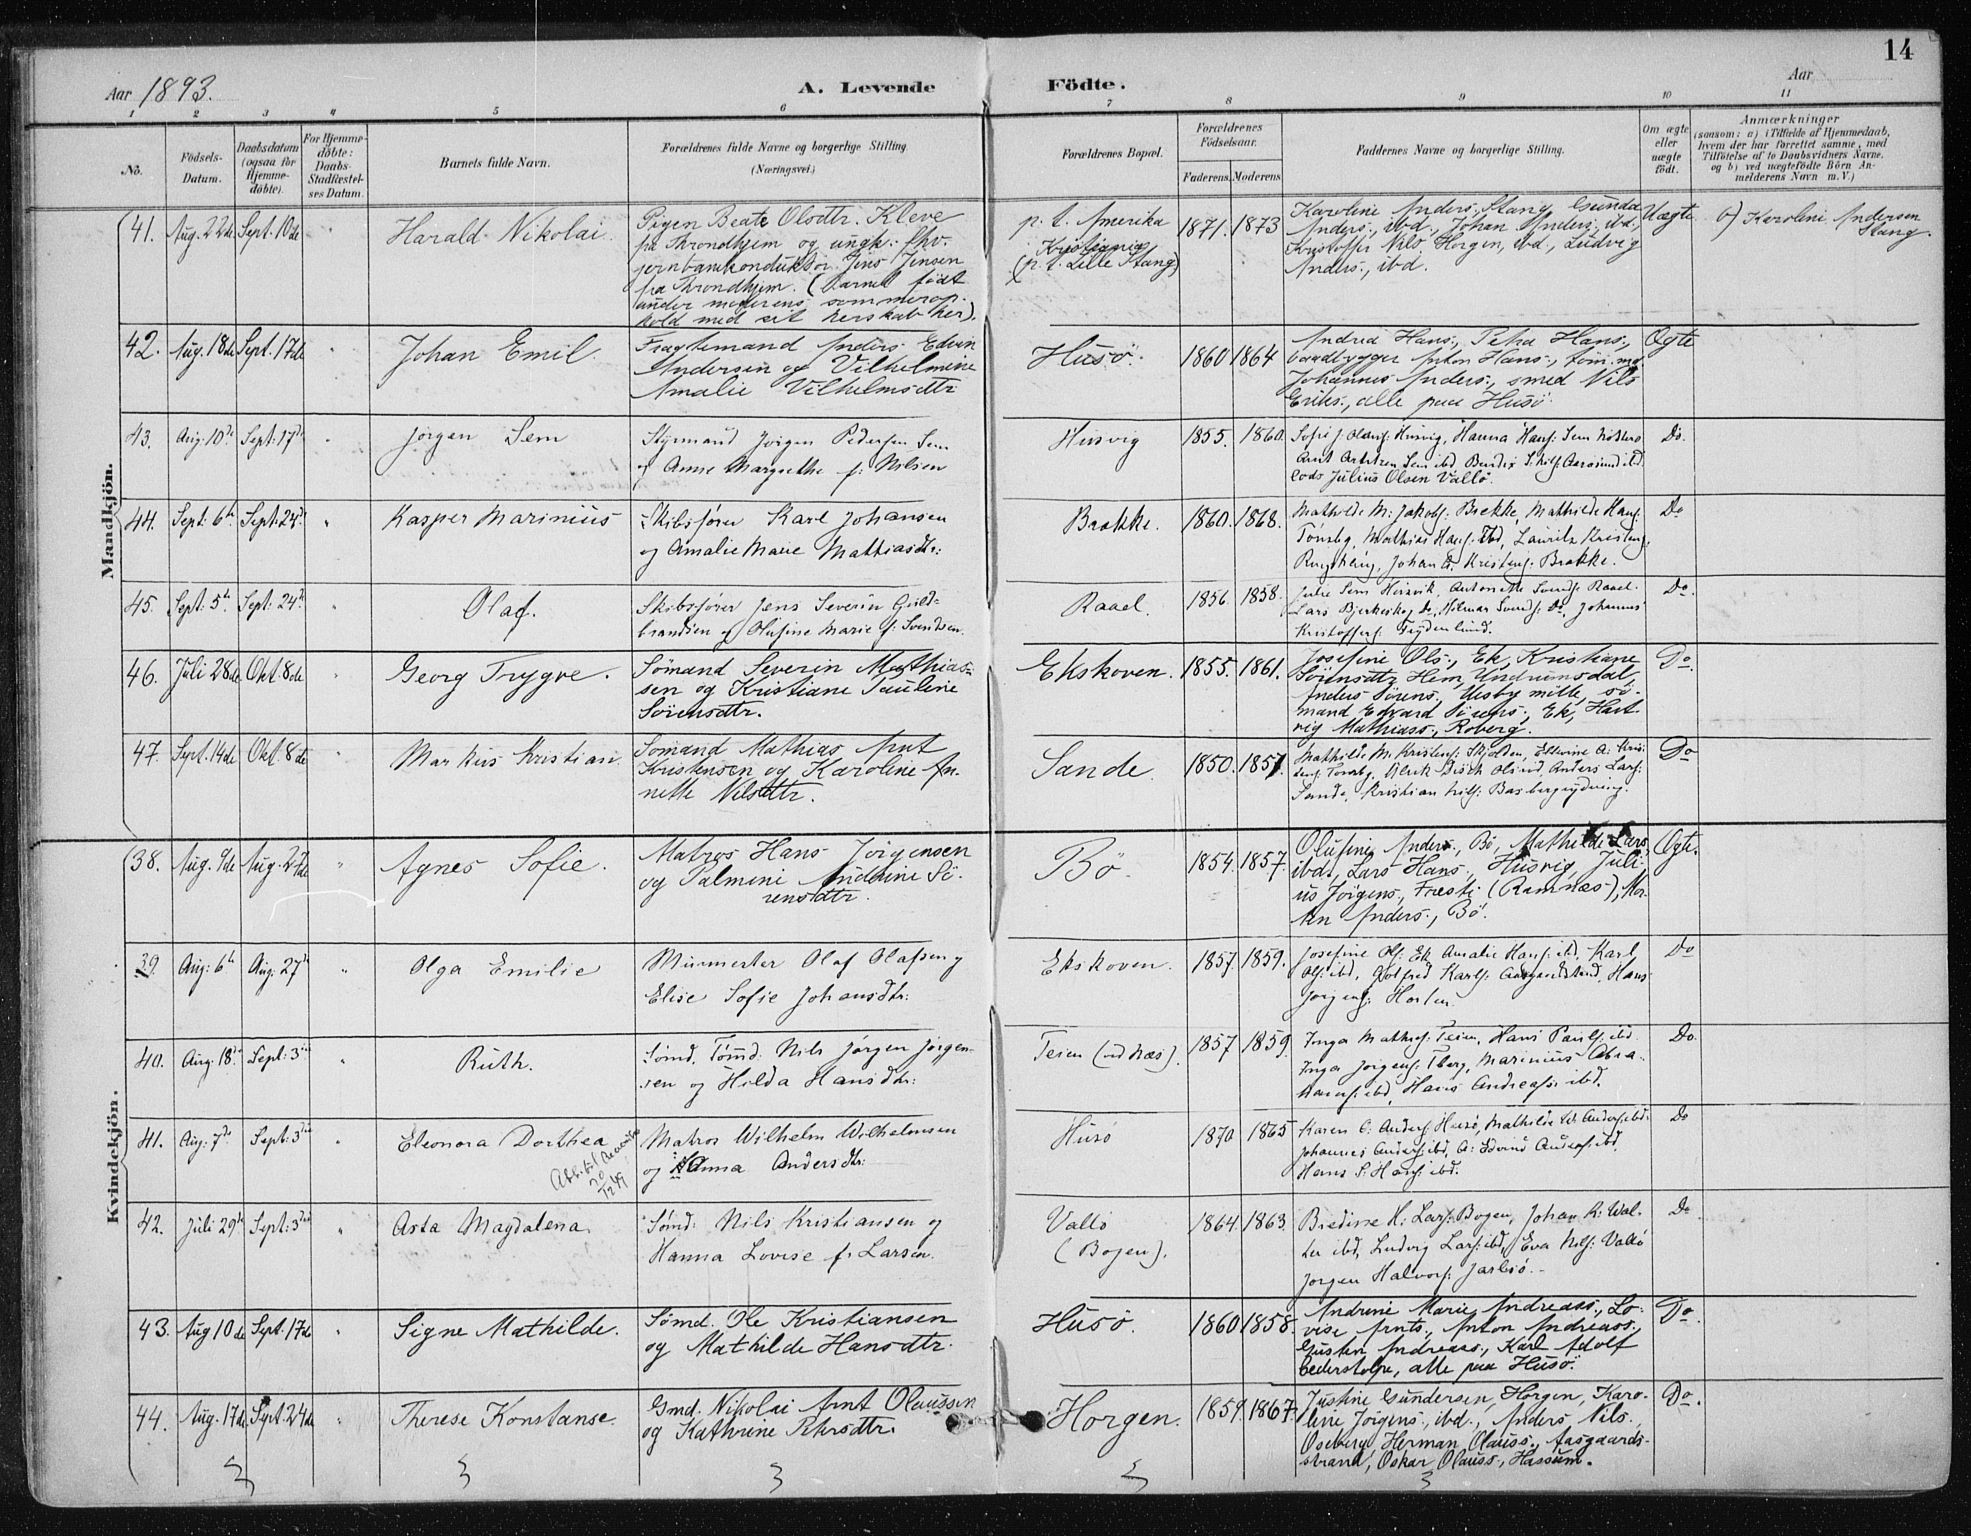 14
Aar 1893.
A. Levende Födte.
Aar
1 2 3 4 5 6 7 8 9 10 11
No.
Födsels-Datum.
Daabsdatum (ogsaa for Hjemme-döbte).
For Hjemme-döbte: Daabs-Stadfæstel-ses Datum.
Barnets fulde Navn.
Forældrenes fulde Navne og borgerlige Stilling. (Næringsvei.)
Forældrenes Bopæl.
Forældrenes Födselsaar.
Faderens. Moderens
Faddernes Navne og borgerlige Stilling.
Om ægte eller uægte födt.
Anmærkninger
(saasom: a) i Tilfælde af Hjemmedaab,
hvem der har forrettet samme, med
Tilföielse af to Daabsvidners Navne,
og b) ved uægtefödte Börn An-
melderens Navn m. V.)
Mandkjön.
41. Aug. 22de Sept. 10de " Harald Nikolai.
Pigen Beate Olsdtr. Kleve
fra Trondhjem og ungk. fhv.
jernbanekonduktör Jens Jensen
fra Trondhjem. (Barnet födt
under moderens sommerop-
hold med sit herskab her).
p. t. Amerika
Kristiania
(p. t. Lille Stang)
1871. 1873
Karoline Anders., Stang, Gunda
Anders., ibd., Johan Anders., ibd.,
Kristoffer Nils. Horgen, ibd., Ludvig
Anders., ibd.
Uægte
b) Karoline Andersen
Stang.
42. Aug. 18de Sept. 17de " Johan Emil.
Fragtemand Anders Edvin
Andersen og Vilhelmine
Amalie Vilhelmsdtr.
Husö. 1860 1864
Andrea Hans., Petra Hans.,
baadbygger Anton Hans., töm.md.
Johannes Anders., smed Nils
Eriks., alle paa Husö.
Ægte
43. Aug. 10de Sept: 17de " Jörgen Sem
Styrmand Jörgen Pedersen Sem
og Anne Margrethe f: Nilsen
Husvig 1855. 1860.
Sofie J: Olsen Husvig, Hanna Hans: Sem
Arnt Arntzen Sem ibd
Lods Julius Olsen Vallö.
Do.
44. Sept: 6te Sept: 24de " Kasper Marinius
Skibsförer Karl Johansen
og Amalie Marie Mathiasdtr:
Brække. 1860. 1868.
Mathilde M: Jakobs: Brekke, Mathilde Hans:
Tönsbg, Mathias Hans: Ibd, Lauritz Kristens:
Ringshaug, Johan A. Kristens: Brække.
Do
45. Sept: 5te Sept: 24de " Olaf.
Skibsförer Jens Severin Guld-
brandsen og Olufine Marie f: Svendsen.
Raael. 1856 1858.
Julie Sem Husvik, Antonette Svends: Raael.
Lars Bjerkeskog Do, Hilmar Svends: Do, Johannes
Kristoffers: Frydenlund.
Do.
46. Juli 28de Okt. 8de " Georg Trygve.
Sömand Severin Mathias-
sen og Kristiane Pauline
Sörensdtr.
Ekskoven. 1855. 1861.
Josefine Ols., Ek, Kristiane
Sörensdtr. Hem, Undrumsdal,
Anders Sörens., Væsby mölle, sö-
mand Edvard Sörens., Ek, Hart-
vig Mathiass., Roberg.
Do.
47. Sept. 14de Okt. 8de " Markus Kristian.
Sömand Mathias Arnt
Kristensen og Karoline An-
nette Nilsdtr.
Sande. 1850. 1857.
Mathilde M: Kristens: Skjolden, Ellevine A: Kris-
tens: Tönsbg, Olsrød, Anders Lars:
Sande, Kristian Nils: Basbergrydning.
Do
Kvindekjön.
38. Aug. 9de Aug. 27de " Agnes Sofie.
Matros Hans Jörgensen
og Palmine Andrine Sö-
rensdtr.
Bö. 1854. 1857.
Olufine Anders., Bö, Mathilde Lars.,
ibd., Lars Hans., Husvig, Juli-
us Jörgens., Fresti (Ramnæs), Mor-
ten Anders., Bö.
Ægte.
39. Aug: 6te Aug: 27de " Olga Emilie
Murmester Olaf Olafsen og
Elise Sofie Johansdtr:
Ekskoven. 1857. 1859.
Josefine Ols: Ek, Amalie Hans: ibd, Karl
Ols: ibd, Gotfred Karls: Aasgaardstrand, Hans
Jörgens: Horten.
Do
40. Aug: 18de Sept: 3die " Ruth.
Sömd. Tömd. Nils Jörgen Jörgen-
sen og Hilda Hansdtr:
Teien (ved Næs). 1857 1859.
Inga Mathias: Teien, Hans Pauls: ibd.
Inga Jörgens: Iberg, Marinius Abra-
hams: ibd, Hans Andreas: ibd.
Do.
41. Aug: 7de Sept: 3die " Eleonora Dorthea
Matros Wilhelm Wilhelmsen
og Anna Andersdtr:
Husö 1870 1865
Karen O: Anders: Husö, Mathilde W: Anders: ibd:
Johannes Anders: ibd, A: Edvind Anders: ibd.
Hans S: Hans: ibd.
Do
42. Juli 29de Sept: 3die " Asta Magdalena.
Sömd: Nils Kristiansen og
Hanna Lovise f: Larsen.
Vallö
(Bogen).
1864. 1863.
H: Lars: Bogen, Johan K: Wal-
ter ibd, Ludvig Lars: ibd, Eva Nils: Vallö
Jörgen Halvors: Jarlsö.
Do
43. Aug 10de Sept. 17de " Signe Mathilde.
Sömd. Ole Kristiansen
og Mathilde Hansdtr.
Husö. 1860 1858.
Andrine Marie Andreass., Lo-
vise Arnts., Anton Andreass.,
Gusten Andreass., Karl Adolf
Cederstolpe, alle paa Husö.
Do.
44. Aug. 17de Sept. 24de " Therese Konstanse.
Gmd. Nikolai Arnt Olaussen
og Kathrine Petersdtr.
Horgen. 1859. 1867.
Justine Gundersen, Horgen, Karo-
line Jörgens., ibd., Anders Nils.,
Oseberg, Herman Olauss., Aasgaards-
strand, Oskar Olauss., Hassum.
Do.